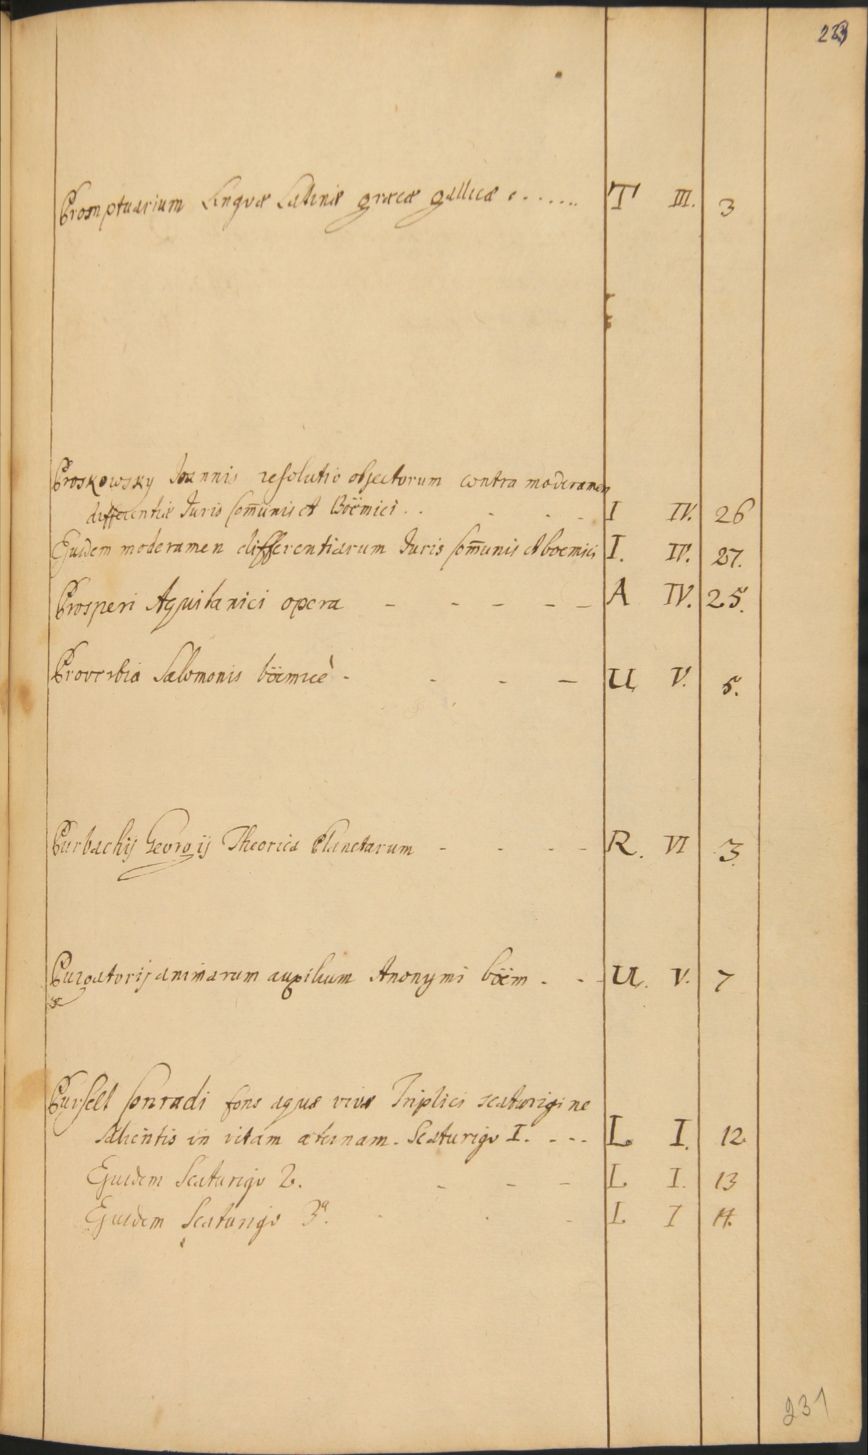 Promptuarium Linguæ Latinæ græcæ gallicæ . . . . . . . T III. 3
Proskowsky Joannis resolutio objectorum contra moderamen
differentiæ Juris Com̄unis et Boëmici . . - - - I IV. 26
Ejusdem moderamen differentiarum Juris Com̄unis et boemici I. IV. 27.
Prosperi Aquitanici opera - - - - - A IV. 25.
Proverbia Salomonis böemicè - - - - U V. 5.
Purbachij Georgij Theorica Planetarum - - - - R. VI 3.
Purgatorij animarum auxilium Anonymi böëm - - - U. V. 7
Purselt Conradi fons aquæ vivæ Triplici scaturigine
salientis in vitam æternam. Scaturigo I. - - - L I. 12
Ejusdem Scaturigo 2. - - - L I. 13
Ejusdem Scaturigo 3ª. - - - L I 14.
231